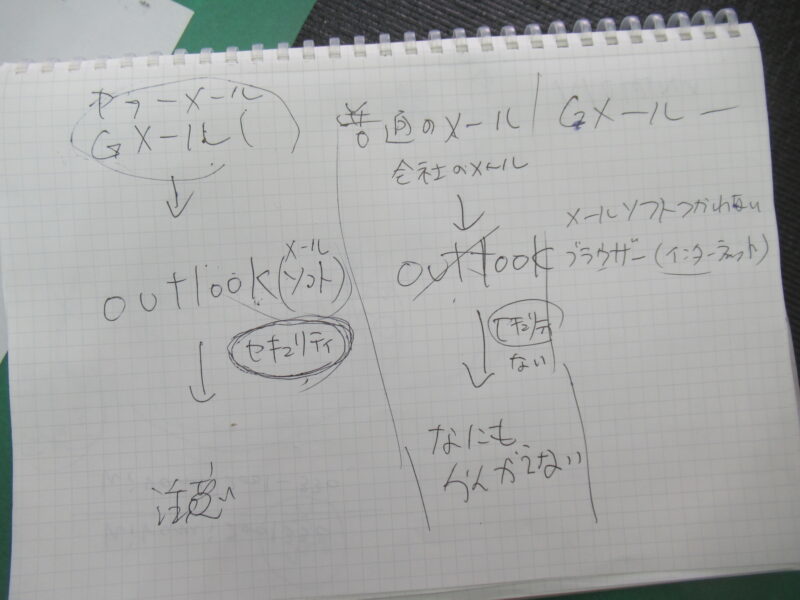 ヤフーメール
Gメール (     )
↓
outlook(メールソフト)
セキュリティ
↓
注意
普通のメール / Gメールー
会社のメール
↓
outlook
セキュリティ
ない
↓
なにも
かんがえない
メールソフトつかわない
ブラウザー(インターネット)